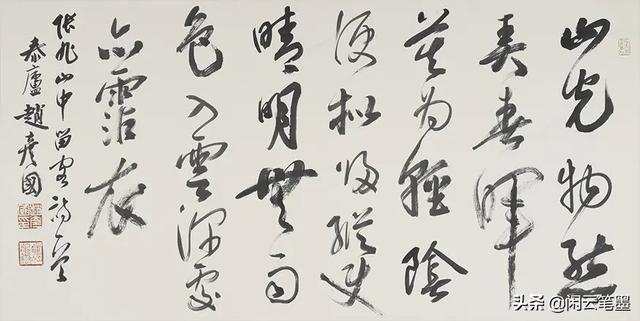 山光物態
弄春暉
莫為輕陰
便擬歸縱使
晴明無雨
色入雲深處
亦霑衣
張旭山中留客詩一首
泰廬趙彥國
头条 @闲云笔墨